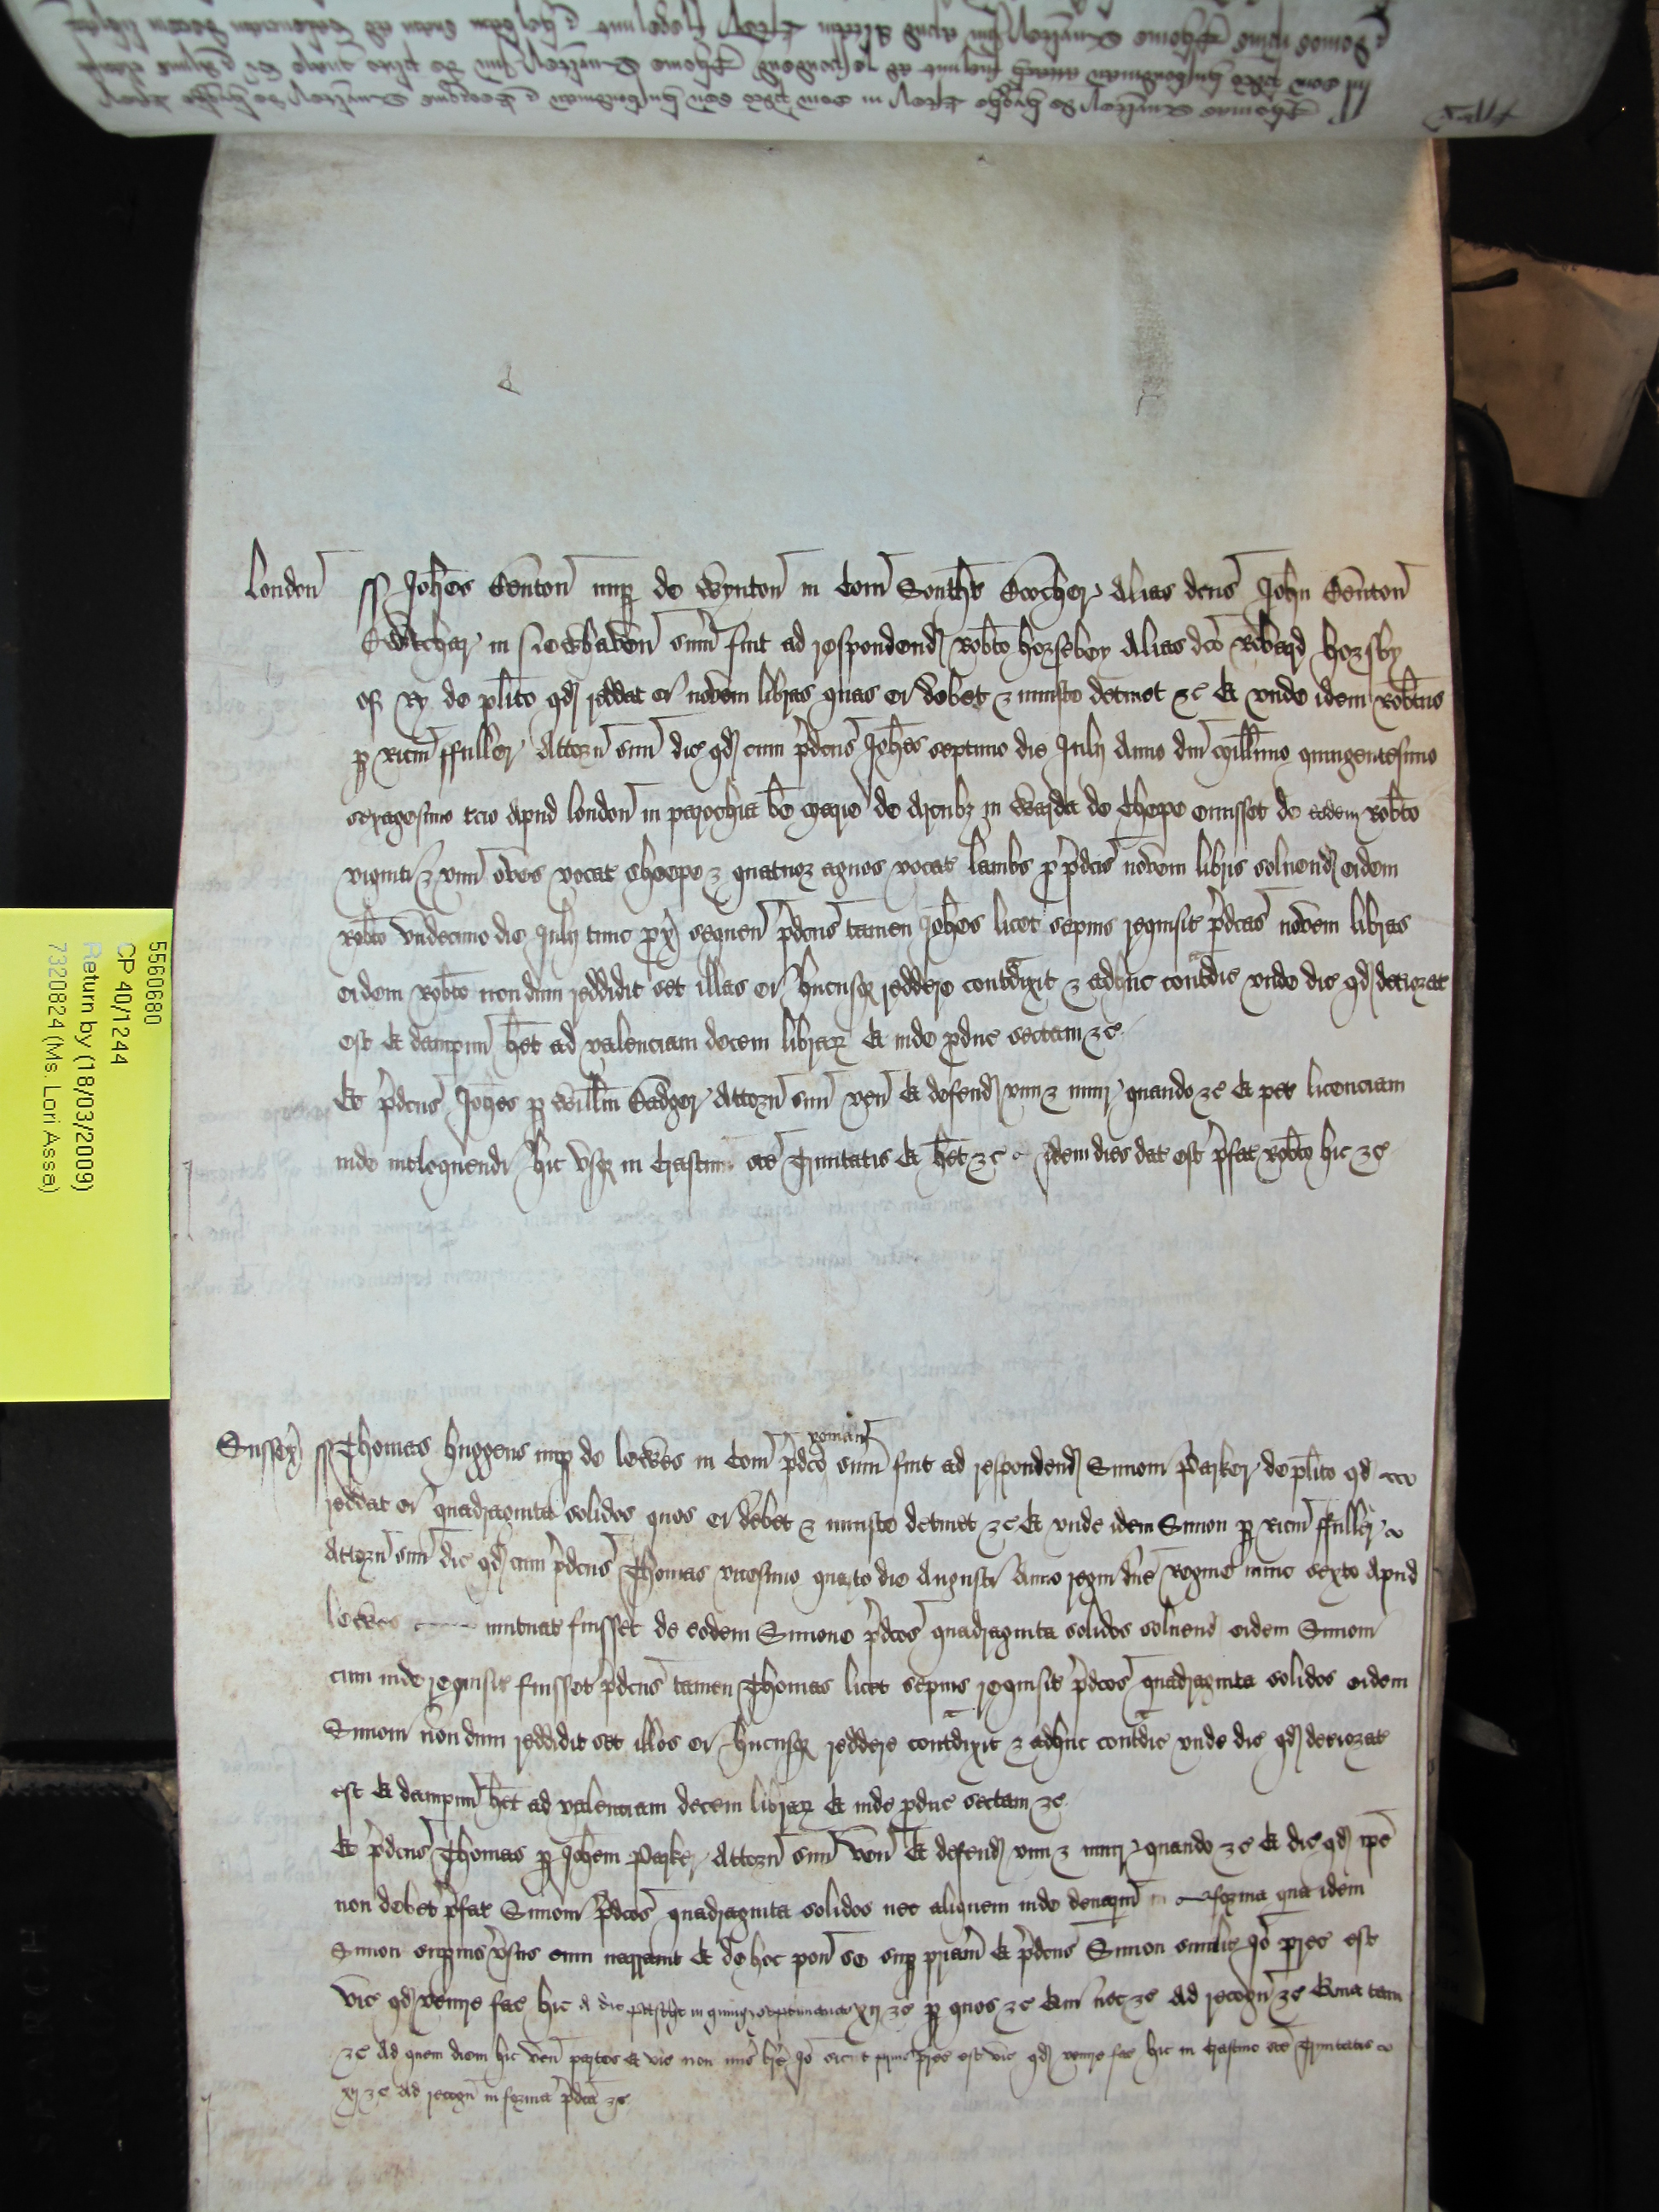 London ss Johes Benton nup de Wynton in Com Southt Bocher Alias dcus John Benton
Bowtcher in Newhaven sum fuit ad respondend Robto horsebey Alias dco Robard horsby
of Ry de plito qd reddat ei novem libras quas ei debet & iniuste detinet &c Et unde idem Robtus
p Ricm ffuller Attorn suu dic qd cum pdcus Johes septimo die Julij Anno dni Millimo quingentesimo
sexagesimo tcio Apud london in parochia be Marie de Arcubz in warda de Chepe emisset de eodem Robto
viginti & unu oves vocat Sheepe & quatuor agnos vocat lambs p pdcis novem libris solvend eidem
Robto undecimo die Julij tunc px sequen pdcus tamen Johes licet sepius requisit pdcas novem libras
eidem Robto non dum reddidit set illas ei hucusq reddere contdixit & adhuc contdic unde dic qd deteriorat
est Et dampnu het ad valenciam decem librar Et inde pduc sectam &c
Et pdcus Johes p Willm Badger Attorn suu ven Et defend vim & iniur quando &c Et pet licenciam
inde intloquendi hic usq in Crastinu sce Trinitatis Et het &c idem dies dat est pfat Robto hic &c
Sussex ss Thomas huggens nup de lewes in Com pdco yoman sum fuit ad respondend Simoni Parker de plito qd
reddat ei quadraginta solidos quos ei debet & iniuste detinet &c Et unde idem Simon p Ricm ffuller
Attorn suu dic qd cum pdcus Thomas vicesimo quarto die Augusti Anno regni dne Regine nunc sexto Apud
lewes mutuat fuisset de eodem Simone pdcos quadraginta solidos solvend eidem Simoni
cum inde requisit fuisset pdcus tamen Thomas licet sepius requisit pdcos quadraginta solidos eidem
Simoni non dum reddidit set illos ei hucusq reddere contdixit & adhuc contdic unde dic qd deteriorat
est Et dampnu het ad valenciam decem librar Et inde pduc sectam &c
Et pdcus Thomas p Johem Parker Attorn suu ven Et defend vim & iniur quando &c Et dic qd ipe
non debet pfat Simoni pdcos quadraginta solidos nec aliquem inde denarium in forma qua idem
Simon supius vsus eum narravit Et de hoc pon se sup priam Et pdcus Simon similit Io prec est
vic qd venire fac hic a die pasche in quinq septimanas xij &c p quos &c Et qui nec &c Ad recogn &c Quia tam
&c Ad quem diem hic ven partes Et vic non mis bre Io sicut prius prec est vic qd venire fac hic in Crastino sce Trinitatis
xij &c Ad recogn in forma pdca &c
5560680
CP 40/1244
Return by (18/03/2009)
7320824 (Ms. Lori Assa)